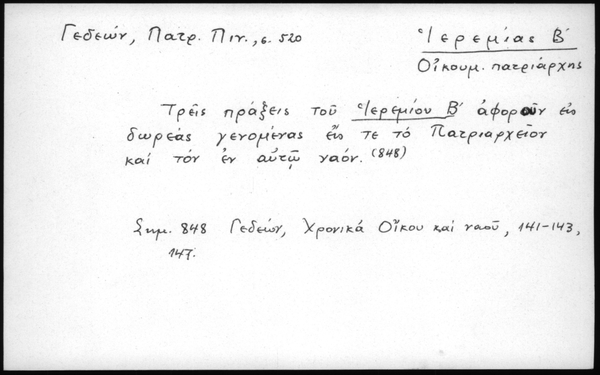 Γεδεών, Πατρ. Πιν., σ. 520
Ἱερεμίας Β΄
Οἰκουμ. πατριάρχης
Τρεῖς πράξεις τοῦ Ἱερεμίου Β΄ ἀφοροῦν εἰς
δωρεάς γενομένας εἴς τε τό Πατριαρχεῖον
καί τόν ἐν αὐτῷ ναόν. (848)
Σημ. 848 Γεδεών, Χρονικά Οἴκου καί ναοῦ, 141-143,
147.